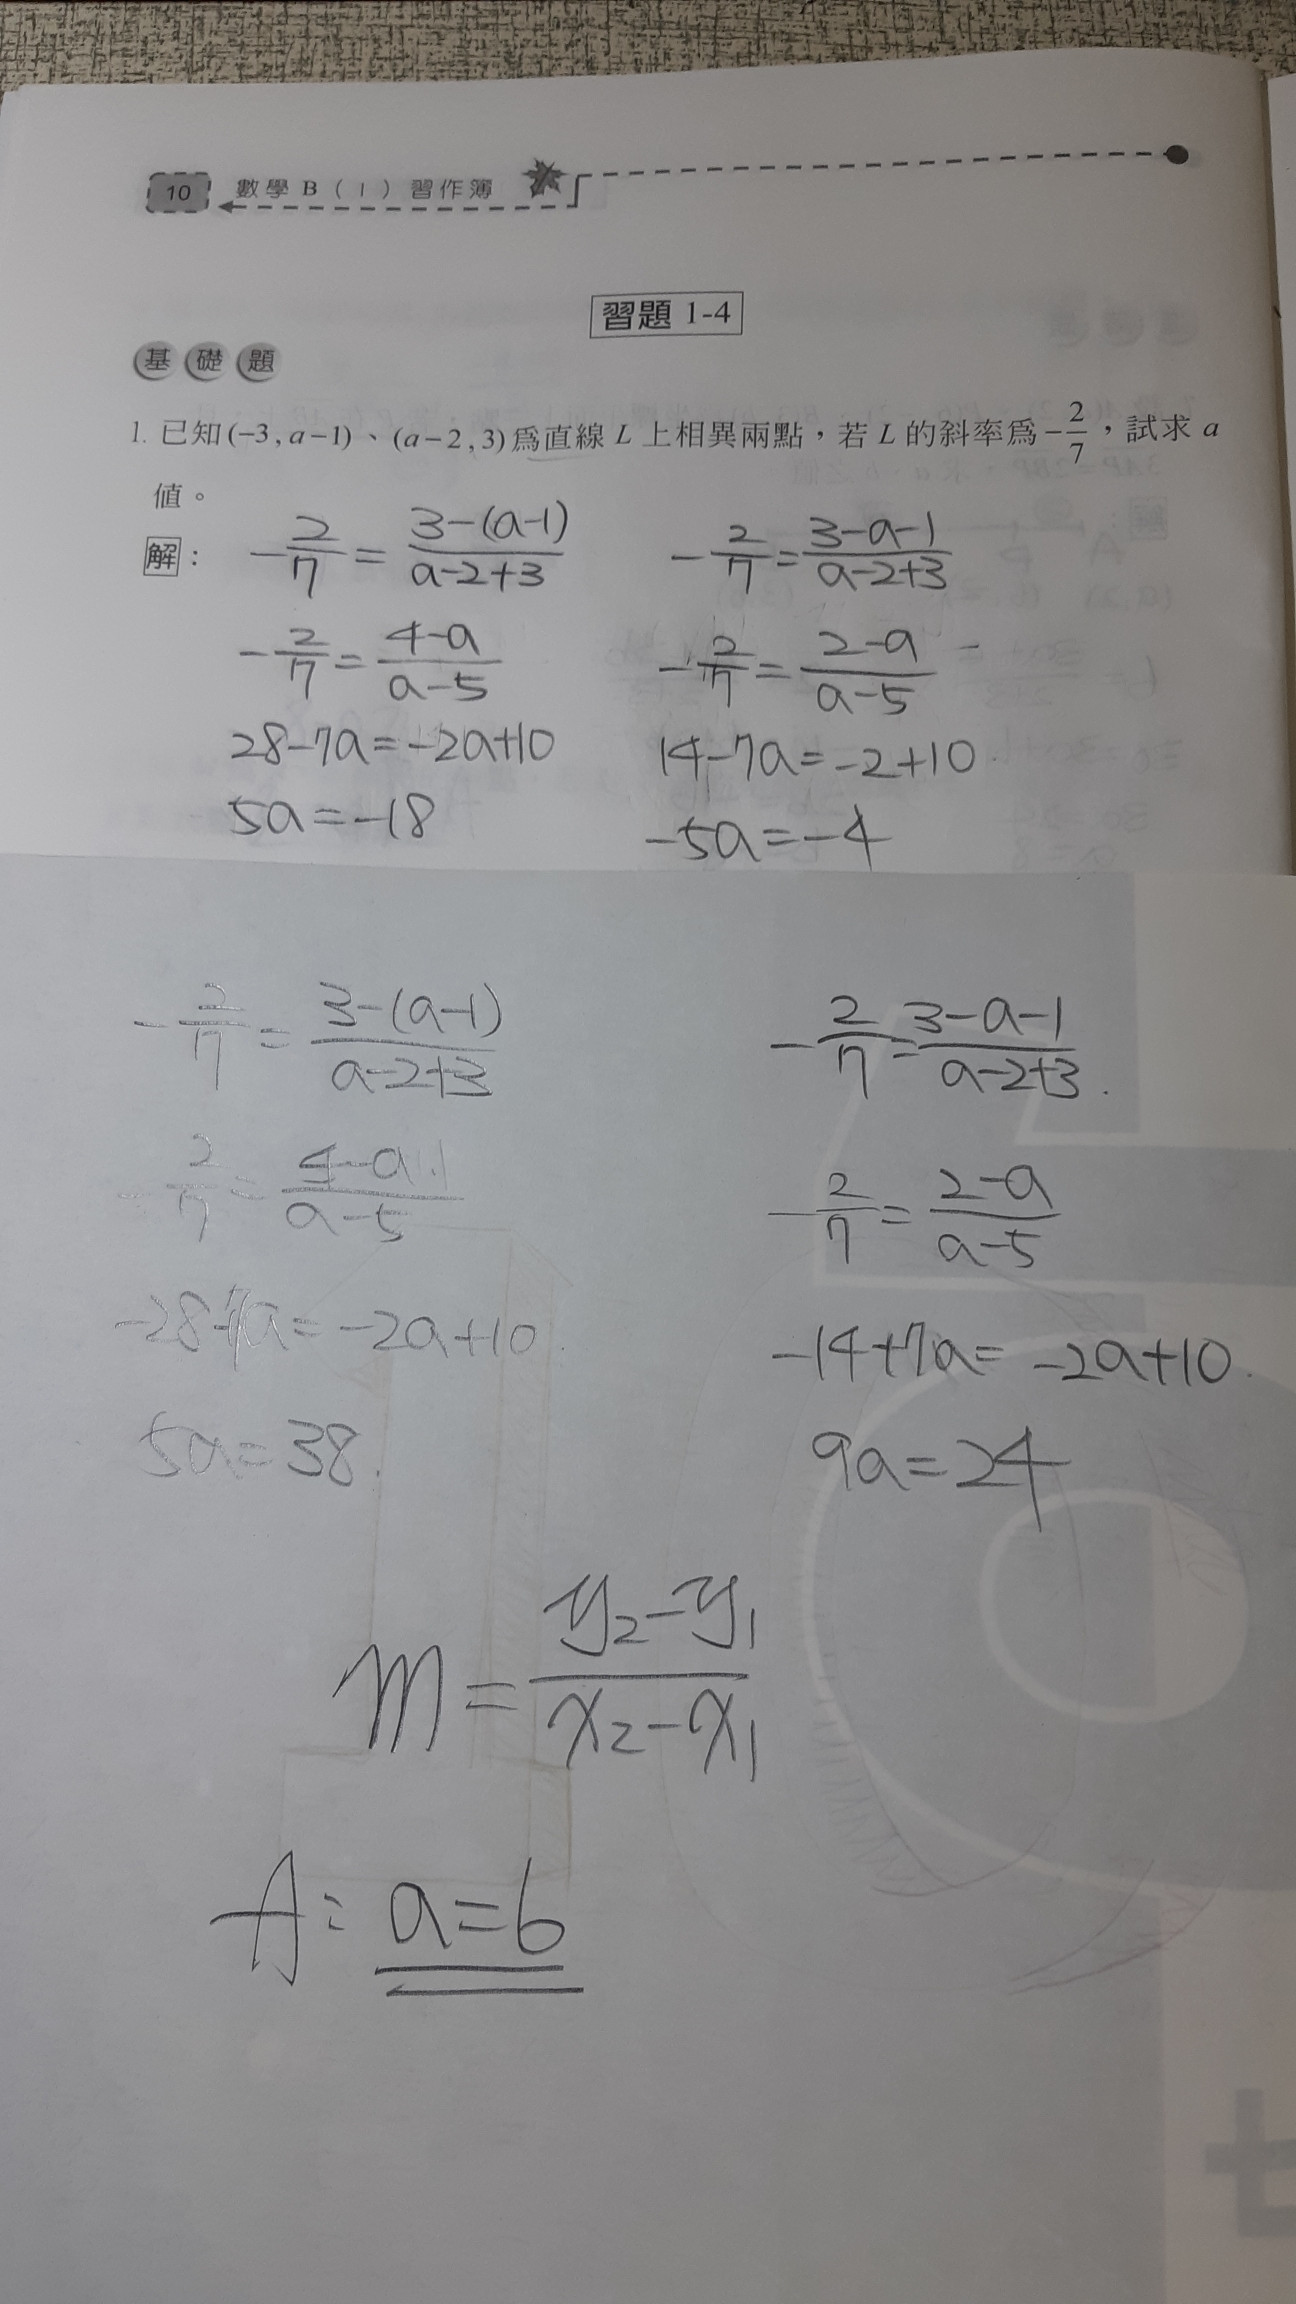 10 數學B(1)習作簿
習題 1-4
基礎題
1. 已知(-3, a-1)、(a-2, 3)為直線 L 上相異兩點，若 L 的斜率為 -2/7，試求 a
值。
解：
-2/7 = (3-(a-1))/(a-2+3)
-2/7 = (4-a)/(a-5)
28-7a=-2a+10
5a=-18
-2/7 = (3-a-1)/(a-2+3)
-2/7 = (2-a)/(a-5)
14-7a=-2+10
-5a=-4
-2/7 = (3-(a-1))/(a-2+3)
-2/7 = (4-a)/(a-5)
-2a+10
5a=38
-2/7 = (3-a-1)/(a-2+3)
-2/7 = (2-a)/(a-5)
-14+7a=-2a+10
9a=24
m = (y₂-y₁)/(x₂-x₁)
A: a=6